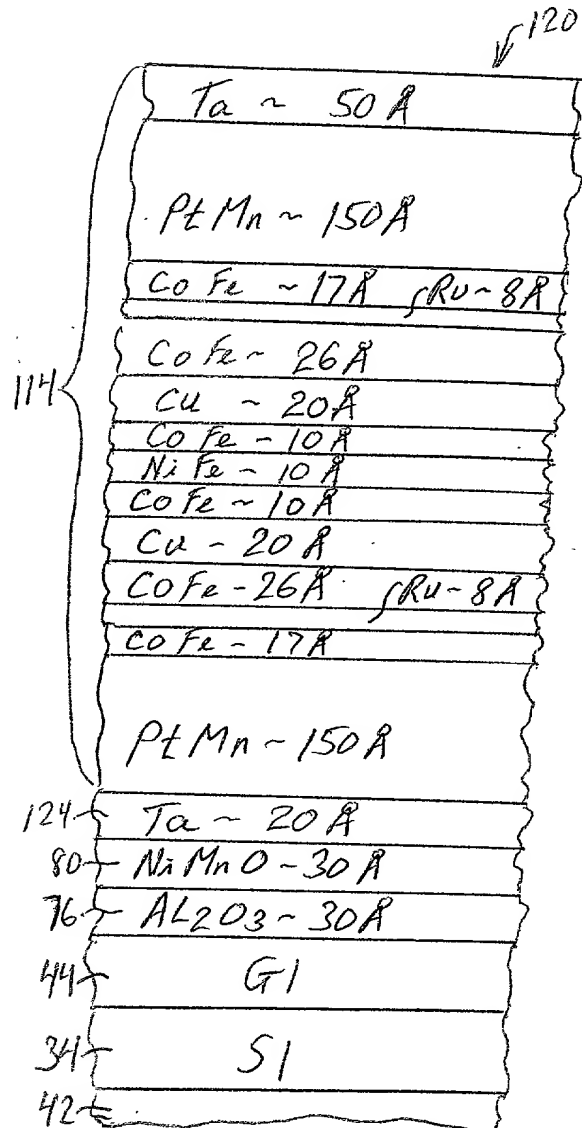 120
Ta ~ 50 Å
PtMn ~ 150Å
CoFe ~17Å Ru~8Å
CoFe~ 26Å
114
Cu ~ 20Å
CoFe - 10Å
NiFe - 10Å
CoFe ~ 10Å
Cu - 20Å
CoFe-26Å Ru-8Å
CoFe - 17Å
PtMn ~ 150Å
124 Ta ~ 20Å
80 NiMnO - 30Å
76 AL2O3 ~ 30Å
44 G1
34 S1
42